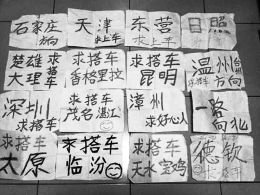 石家庄
方向
天津
求上车
东营
求上车
日照
楚雄 求搭
大理 车
求搭车
香格里拉
求搭车
昆明
温州 台州
方向
深圳
求搭车
求搭车
茂名 湛江
漳州
求好心人
一路
向北
求搭车
太原
求搭车
临汾
求搭车
天水 宝鸡
德钦